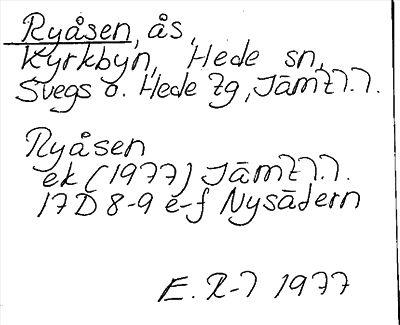 Ryåsen, ås,
Kyrkbyn, Hede sn,
Svegs o. Hede tg, Jämtl.l.
Ryåsen
ek (1977) Jämtl.l.
17D 8-9 e-f Nysätern
E. R-l 1977